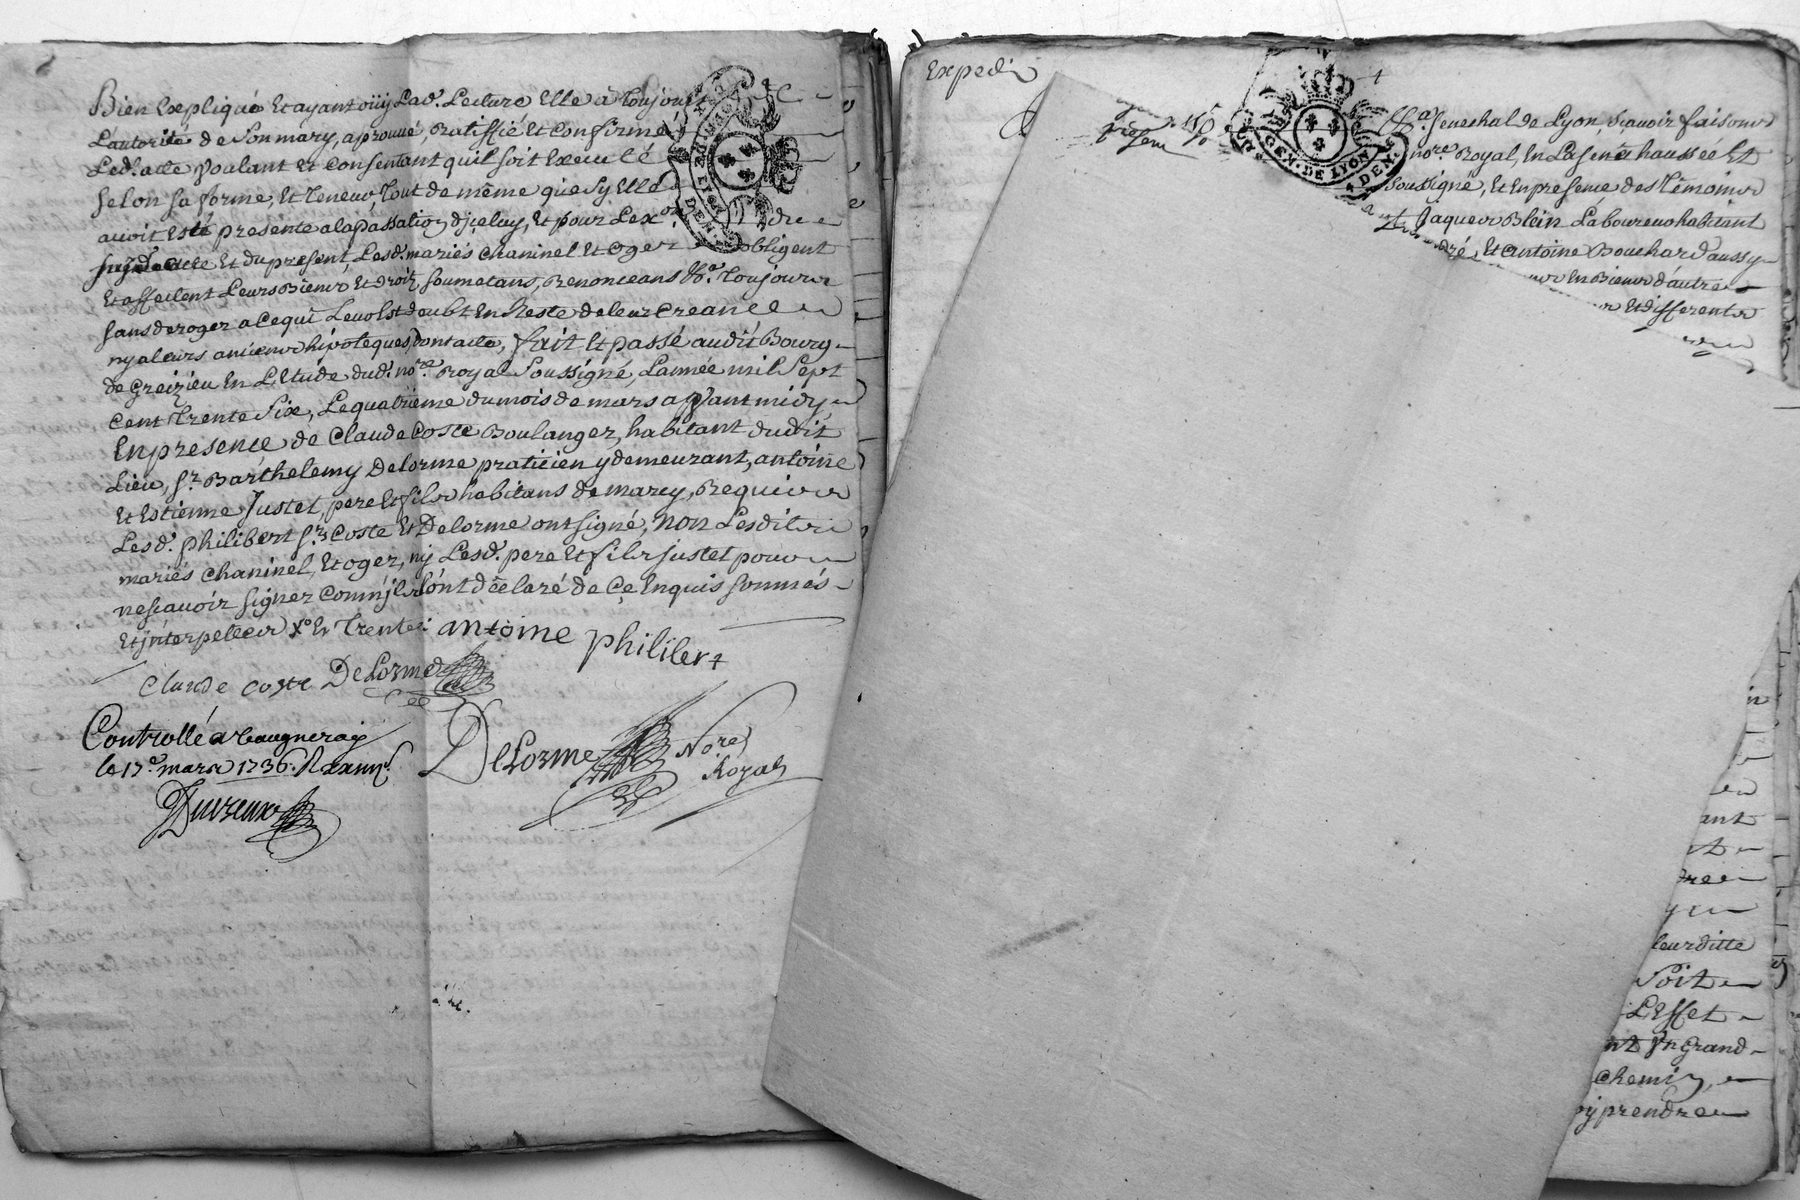 Bien Expliqué Et ayant oüy Lad. Lecture Elle a Toujours
L'autorité de Son mary, aprouué, Ratiffié Et Confirmé
Led. acte Voulant Et Consentant qu'il soit Executé
Selon Sa forme, Et Teneur, Tout de même que Sy Elle
auoit Esté presente a la passation d'jceluy, Et pour L'ex.on
acte Et du present, Lesd. mariés Chaninel Et Oger obligent
Et affectent Leurs Biens Et droits, Soumetans, Renonceans &a. Toujours
Sans deroger a Ce qui Leur Est deub En Reste de leur Creance
ny a leurs anciens hipoteques, dont acte, fait Et passé audit Bourg
de Greizieu En L'Etude dud. no.re Royal Soussigné, L'année mil Sept
Cent Trente Six, Le quatrieme du mois de mars apvant midy
En presence de Claude Coste Boulanger, habitant dudit
Lieu, Sr. Barthelemy Delorme praticien y demeurant, antoine
Et Estienne Justet, pere Et fils habitans de marcy, Requis
Lesd. Philibert Sr. Coste Et Delorme ont signé, non Lesdits
mariés Chaninel, Et Oger, ny Lesd. pere Et fils Justet pour
ne sçauoir signer Comm'jls ont déclaré de Ce Enquis Sommés
Et jnterpellés
antoine philibert
Claude Coste DeLorme
Controllé a Vaugneray
le 17e mars 1736.
DeLorme No.re
Royal
Expedié
Senechal de Lyon, Sçavoir faisons
no.re Royal, En La Senechaussée Et
Soussigné, Et En presence des Témoins
Jaques Blein Laboureur habitant
Et antoine Bouchard aussy
En Biens d'autre
Et differents
GEN. DE LYON
4 DEN.
ant
leur ditte
Soit
L'Effet
Vn Grand
Chemin,
y prendre